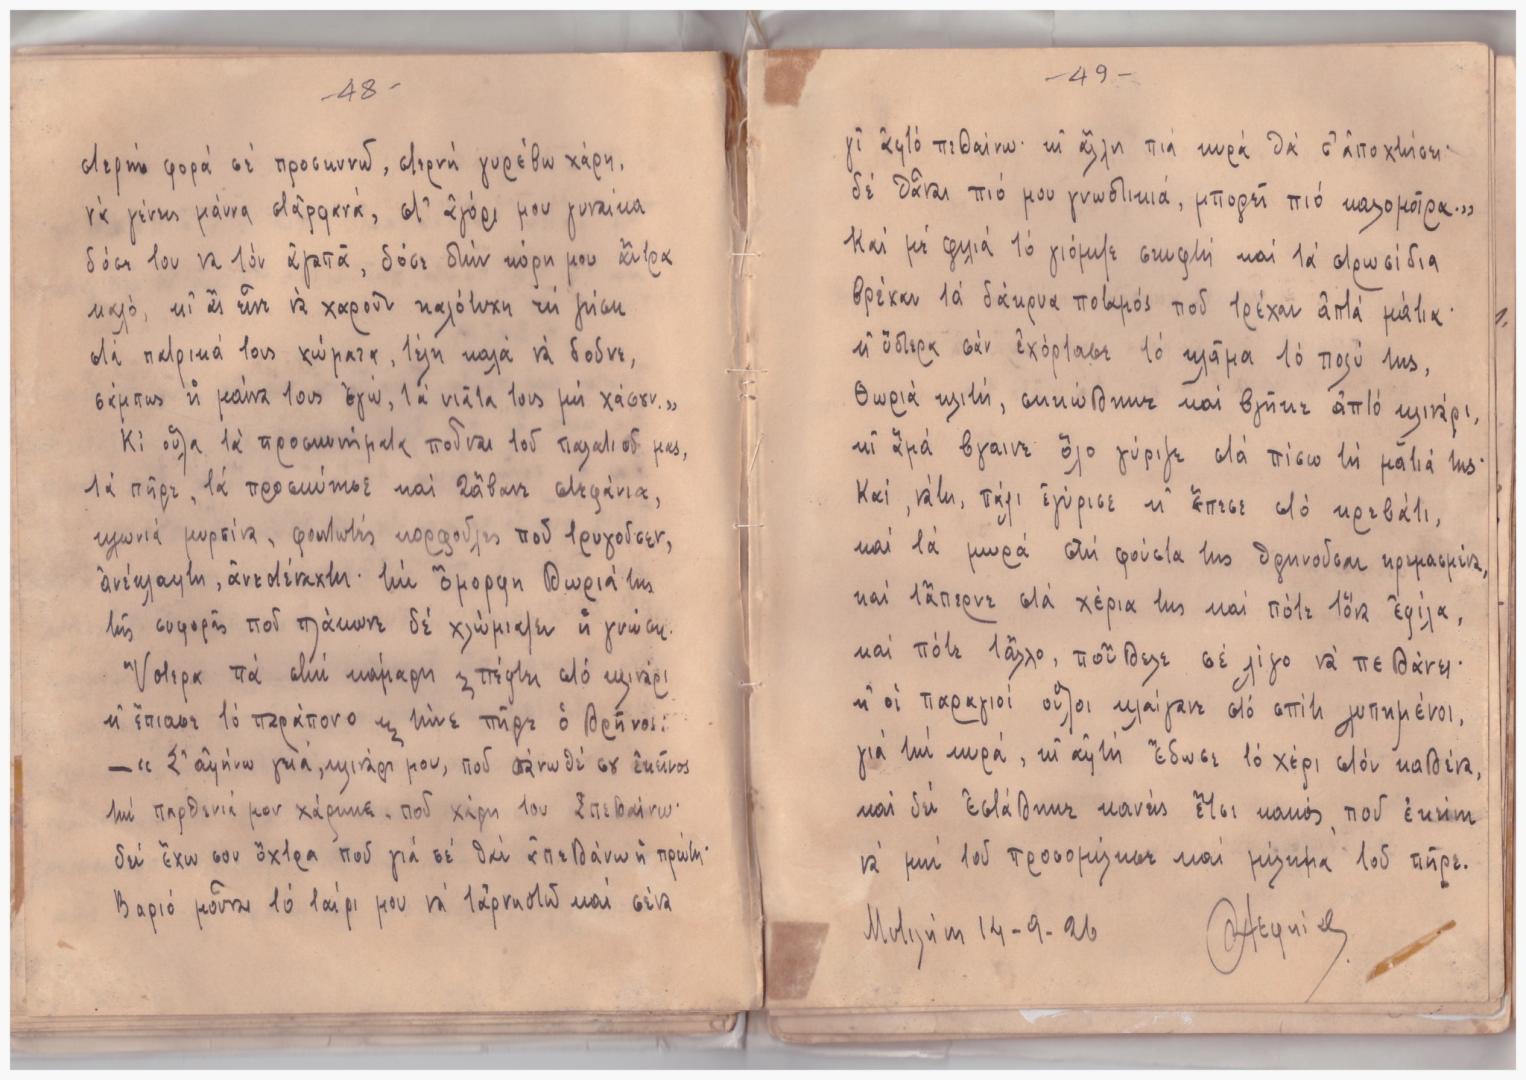 -48-
στερνή φορά σέ προσκυνῶ, στερνή γυρέβω χάρη,
νά γένης μάννα στἄρφανά, στ' ἀγόρι μου γυναίκα
δόσε του να τόν ἀγαπᾶ, δόσε στήν κόρη μου ἄντρα
καλό, κι ἄς εἶνε νά χαροῦν καλότυχη τή ζήση
στά πατρικά τους χώματα, τέλη καλά νά δοῦνε,
σάμπως ἡ μάνα τους ἐγώ, τά νιᾶτα τους μή χάσουν.»
Κι οὖλα τά προσκυνήματα ποὖναι τοῦ παλατιοῦ μας,
τά πῆρε, τά προσκύνησε καί τἄβανε στεφάνια,
κλωνιά μυρσίνα, φουντωτές κορφοῦλες ποῦ τρυγοῦσεν,
ἀνέκλαυτη, ἀνεστέναχτη· τήν ὄμορφη θωριά της
τῆς συφορᾶς ποῦ πλάκωνε δέ χλώμιαζεν ἡ γνώση.
Ὕστερα πά στήν κάμαρη πέφτει στό κλινάρι
κι ἔπιασε τό παράπονο τήνε πῆρε ὁ θρῆνος:
—«Σ' ἀφήνω γειά, κλινάρι μου, ποῦ πάνωθέ σου ἐκεῖνος
τήν παρθενιά μου χάρηκε, ποῦ χάρη του πεθαίνω·
δέν ἔχω σου ὄχτρα ποῦ γιά σέ θάν ἀπεθάνω ἡ πρώτη·
Βαριό μοὖναι τό ταίρι μου νά τἀρνηστῶ καί σένα
-49-
γι αὐτό πεθαίνω· κι ἄλλη πιά κυρά θά σ' ἀποχτήσει·
δέ θἆναι πιό μου γνωστικιά, μπορεῖ πιό καλομοῖρα.»
Καί μέ φιλιά τό γιόμιζε σκυφτή καί τά στρωσίδια
βρέχαν τά δάκρυα ποταμός ποῦ τρέχαν ἀπτά μάτια·
κι ὕστερα σάν ἐχόρτασε τό κλᾶμα τό πολύ της,
θωριά κλιτή, σηκώθηκε καί βγῆκε ἀπτό κλινάρι,
κι ἅμά βγαινε ὅλο γύριζε στά πίσω τή ματιά της·
Καί, νάτη, πάλι ἐγύρισε κι ἔπεσε στό κρεβάτι,
καί τά μωρά στή φούστα της θρηνοῦσαν κρεμασμένα,
καί τἄπερνε στά χέρια της καί πότε τὄνα ἐφίλα,
καί πότε τἄλλο, ποὖθελε σέ λίγο νά πεθάνει·
κι οἱ παραγιοί οὖλοι κλαίγανε στό σπίτι λυπημένοι,
γιά τήν κυρά, κι αὐτή ἔδωσε τό χέρι στόν καθένα,
καί δέν ἐστάθηκε κανείς ἔτσι κακός, ποῦ ἐκείνη
νά μήν τοῦ προσομίλησε καί μίλημα τοῦ πῆρε.
Μυτιλήνη 14-9-26